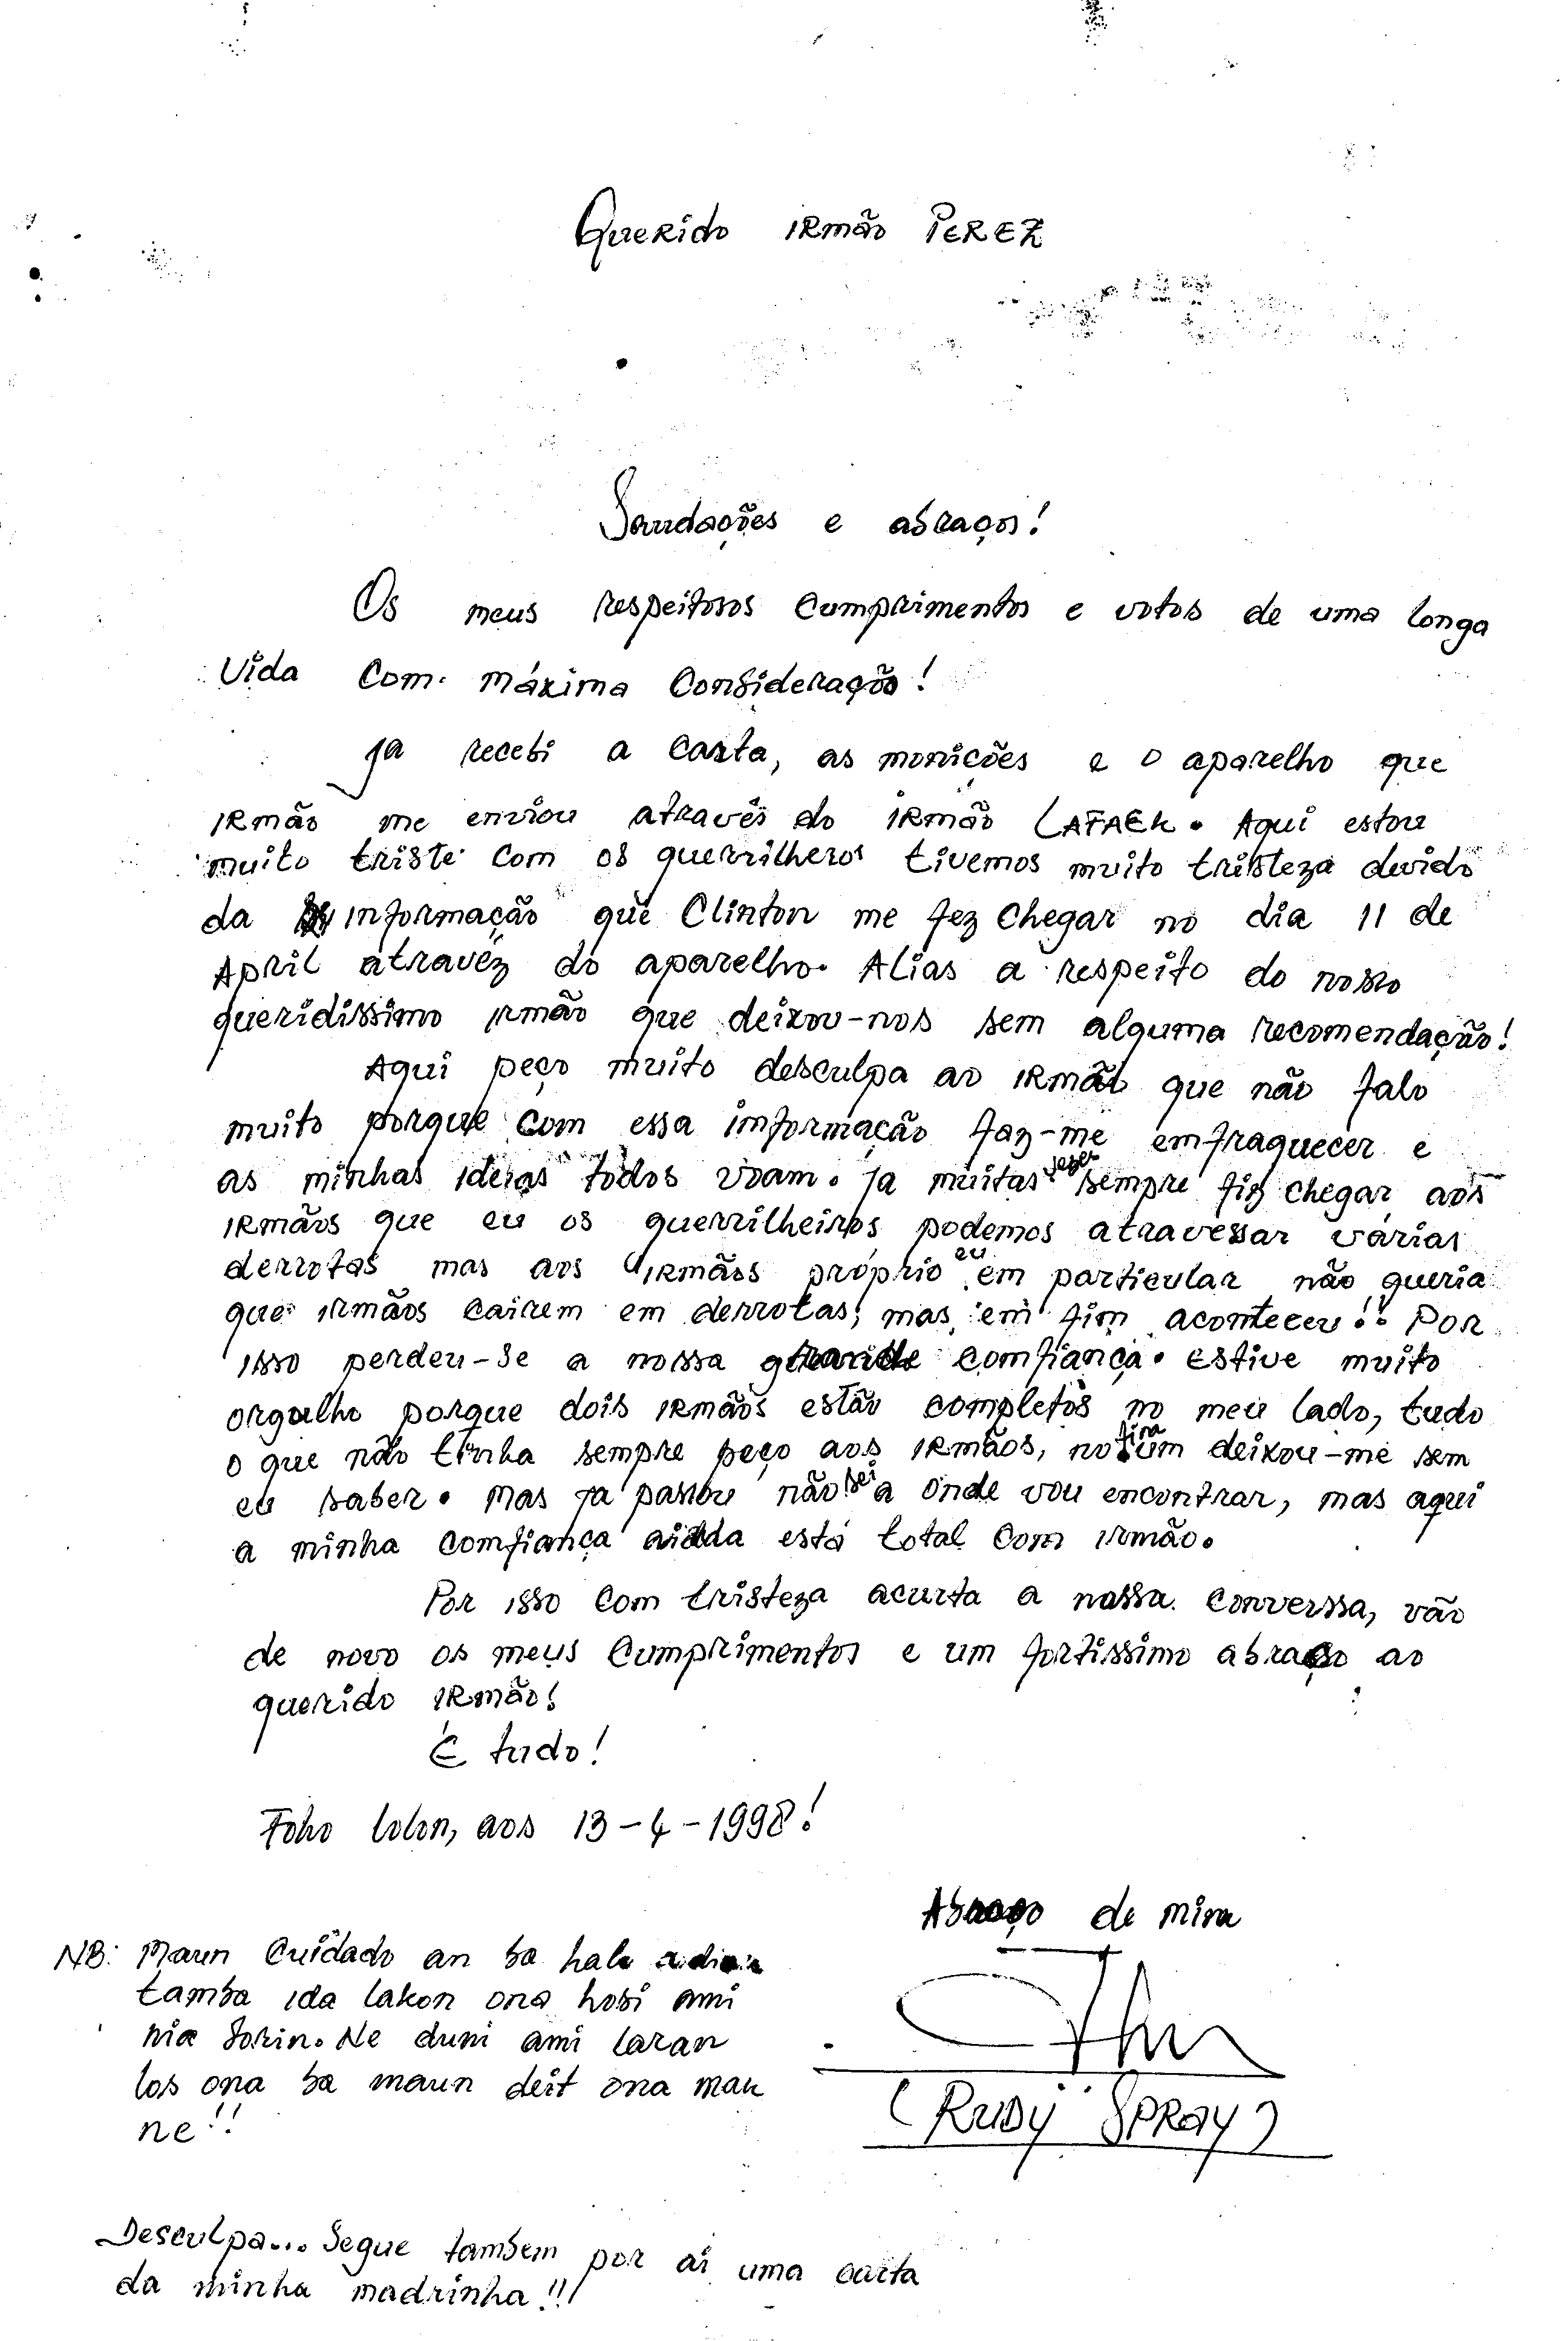 Querido irmão PEREZ
Saudações e abraços!
Os meus respeitosos cumprimentos e votos de uma longa
vida com máxima consideração!
Ja recebi a carta, as monições e o aparelho que
irmão me enviou através do irmão LAFAEK. Aqui estou
muito triste com os guerrilheros tivemos muito tristeza devido
da informação que Clinton me fez chegar no dia 11 de
April atravéz do aparelho. Alias a respeito do nosso
queridissimo irmão que deixou-nos sem alguma recomendação!
Aqui peço muito desculpa ao irmão que não falo
muito porque com essa informação faz-me emfraquecer e
as minhas ideias todos voam. Ja muitas vezes sempre fiz chegar aos
irmãos que eu os guerrilheiros podemos atravessar várias
derrotas mas aos irmãos próprio eu em particular não queria
que irmãos cairem em derrotas, mas em fim aconteceu!! Por
isso perdeu-se a nossa grande comfiança. Estive muito
orgulho porque dois irmãos estão completos no meu lado, tudo
o que não tinha sempre peço aos irmãos, no fim um deixou-me sem
eu saber. Mas ja passou não sei a onde vou encontrar, mas aqui
a minha comfiança ainda está total com irmão.
Por isso com tristeza acurta a nossa converssa, vão
de novo os meus cumprimentos e um fortissimo abraço ao
querido irmão!
É tudo!
Foho Lolon, aos 13-4-1998!
Abraço de mira
NB: Maun Cuidado an ba hale
tamba ida lakon ona hosi ami
nia sorin. Ne duni ami laran
los ona ba maun deit ona mak
ne!!
(RUDY SPRAY)
Desculpa... Segue tambem por ai uma carta
da minha madrinha!!